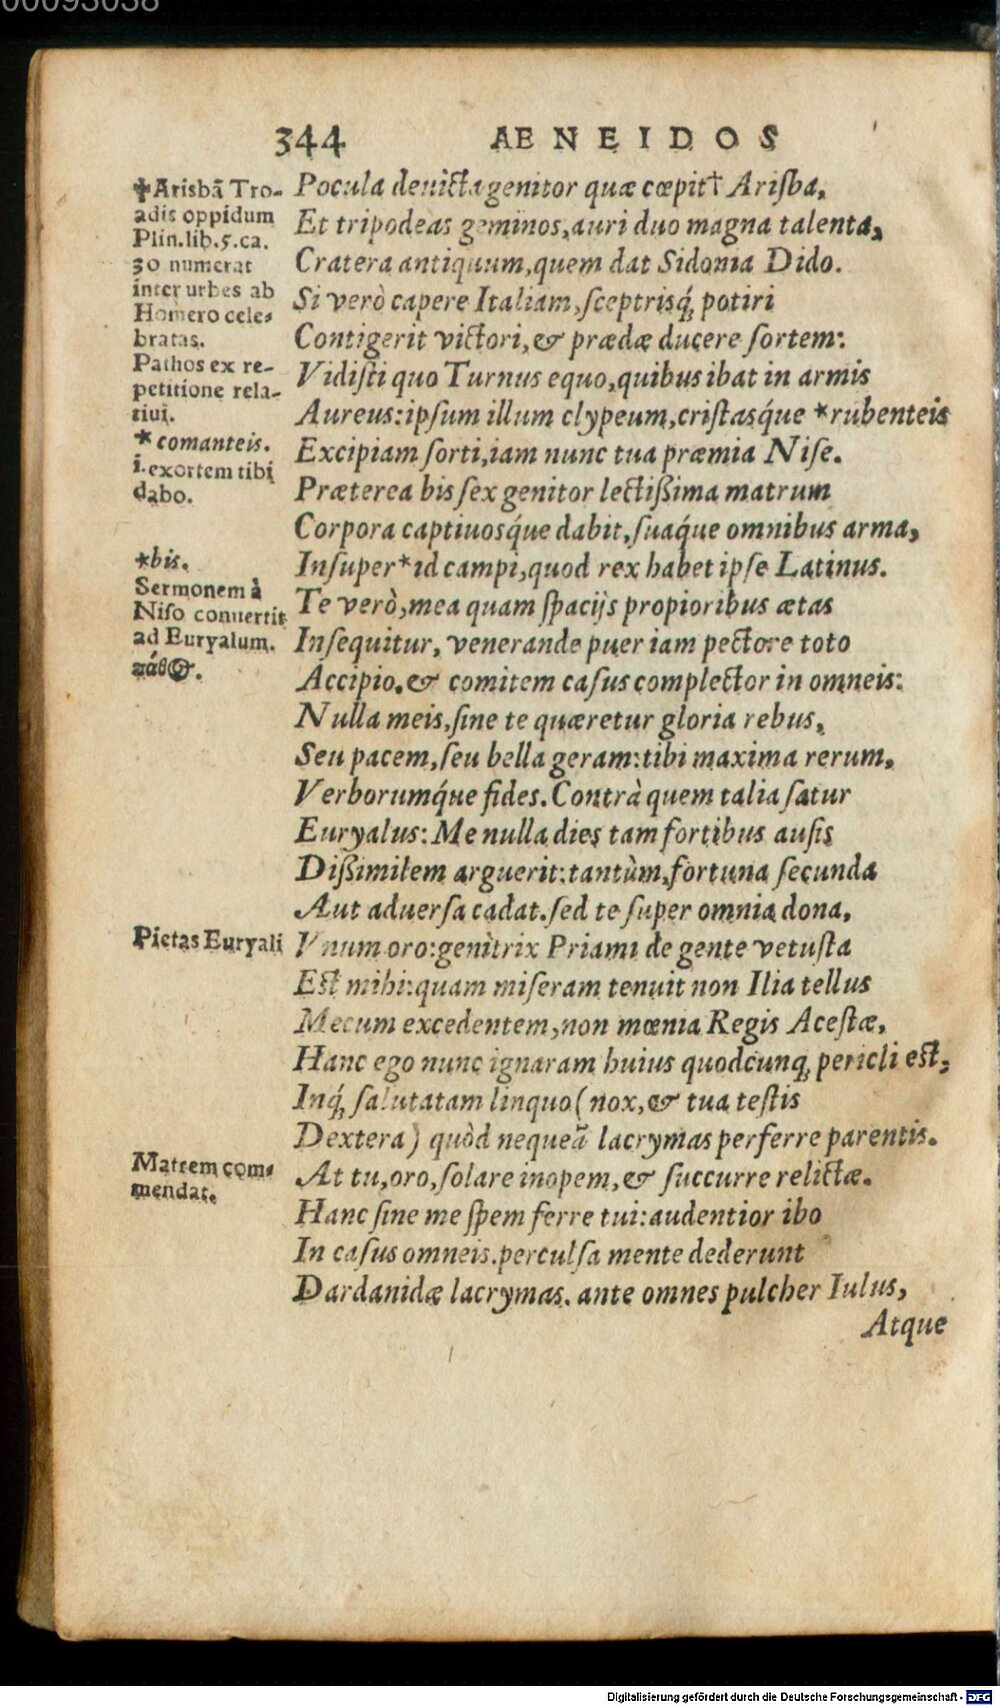 00093038
344 AENEIDOS
✝Arisbã Tro-
adis oppidum
Plin.lib.5.ca.
30 numerat
inter urbes ab
Homero cele-
bratas.
Pathos ex re-
petitione rela-
tiui.
*comanteis.
i.exortem tibi
dabo.
*bis.
Sermonem à
Niso conuertit
ad Euryalum.
πάθ
Pietas Euryali
Matrem com-
mendat.
Pocula deuicta genitor quæ cœpit† Arisba,
Et tripodeas geminos, auri duo magna talenta,
Cratera antiquum, quem dat Sidonia Dido.
Si verò capere Italiam, sceptrisq́; potiri
Contigerit victori, & prædæ ducere sortem:
Vidisti quo Turnus equo, quibus ibat in armis
Aureus: ipsum illum clypeum, cristasq́ue *rubenteis
Excipiam sorti, iam nunc tua præmia Nise.
Præterea bis sex genitor lectißima matrum
Corpora captiuosq́ue dabit, suaq́ue omnibus arma,
Insuper *id campi, quod rex habet ipse Latinus.
Te verò, mea quam spacijs propioribus ætas
Insequitur, venerande puer iam pectore toto
Accipio. & comitem casus complector in omneis:
Nulla meis, sine te quæretur gloria rebus,
Seu pacem, seu bella geram: tibi maxima rerum,
Verborumq́ue fides. Contrà quem talia fatur
Euryalus: Me nulla dies tam fortibus ausis
Dißimilem arguerit: tantùm, fortuna secunda
Aut aduersa cadat. sed te super omnia dona,
Vnum oro: genitrix Priami de gente vetusta
Est mihi: quam miseram tenuit non Ilia tellus
Mecum excedentem, non mœnia Regis Acestæ,
Hanc ego nunc ignaram huius quodcunq; pericli est,
Inq́; salutatam linquo (nox, & tua testis
Dextera) quòd nequeã lacrymas perferre parentis.
At tu, oro, solare inopem, & succurre relictæ.
Hanc sine me spem ferre tui: audentior ibo
In casus omneis. perculsa mente dederunt
Dardanidæ lacrymas. ante omnes pulcher Iulus,
Atque
Digitalisierung gefördert durch die Deutsche Forschungsgemeinschaft - DFG